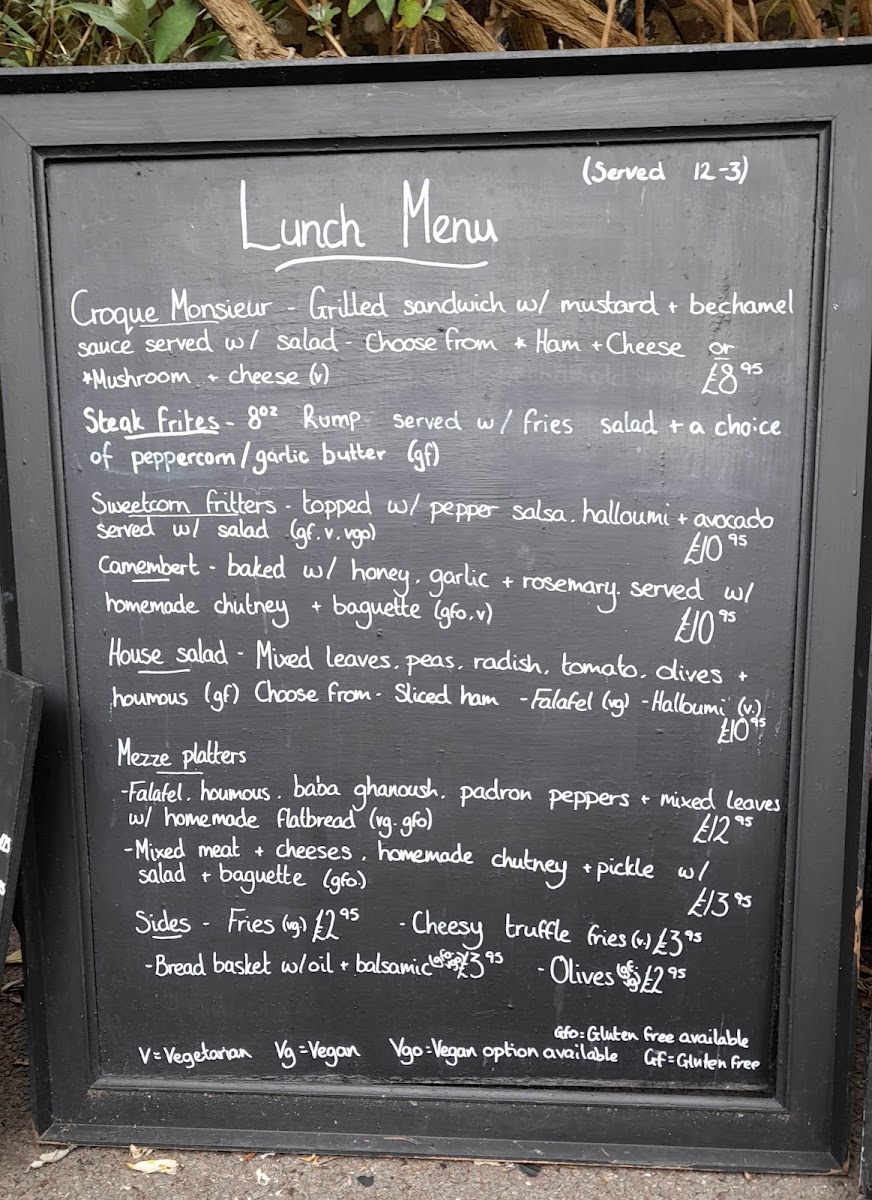 (Served 12-3)
Lunch Menu
Croque Monsieur - Grilled sandwich w/ mustard + bechamel
sauce served w/ salad - Choose from * Ham + Cheese or
*Mushroom + cheese (v) £8.95
Steak frites - 8oz Rump served w/ fries salad + a choice
of peppercorn/garlic butter (gf)
Sweetcorn fritters - topped w/ pepper salsa, halloumi + avocado
served w/ salad (gf, v, vgo) £10.95
Camembert - baked w/ honey, garlic + rosemary. served w/
homemade chutney + baguette (gfo, v) £10.95
House salad - Mixed leaves, peas, radish, tomato, olives +
houmous (gf) Choose from - Sliced ham - Falafel (vg) - Halloumi (v.)
£10.95
Mezze platters
- Falafel, houmous, baba ghanoush, padron peppers + mixed leaves
w/ homemade flatbread (vg. gfo) £12.95
- Mixed meat + cheeses, homemade chutney + pickle w/
salad + baguette (gfo.) £13.95
Sides - Fries (vg) £2.95 - Cheesy truffle fries (v.) £3.95
- Bread basket w/oil + balsamic £3.95 - Olives £2.95
Gfo = Gluten free available
V = Vegetarian Vg = Vegan Vgo = Vegan option available Gf = Gluten free